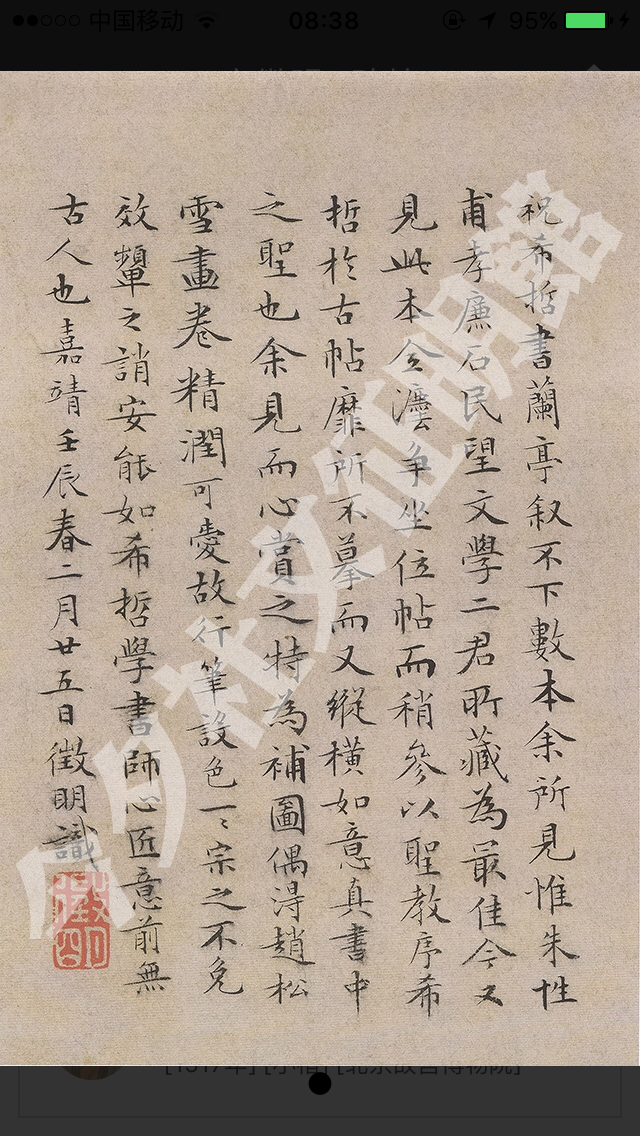 中国移动 08:38 95%
祝希哲書蘭亭叙不下數本余所見惟朱性
甫孝廉石民望文學二君所藏為最佳今又
見此本全灋争坐位帖而稍參以聖教序希
哲於古帖靡所不摹而又縱橫如意真書中
之聖也余見而心賞之特為補圖偶淂趙松
雪畫卷精潤可愛故行筆設色一〻宗之不免
效顰之誚安能如希哲學書師心匠意前無
古人也嘉靖壬辰春二月廿五日徵明識
徵明
夕社文徵明館
[小楷] [北京故宫博物院]